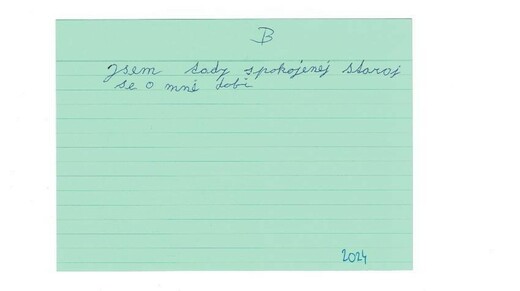 B
Jsem tady spokojenej staraj
se o mně dobi
2024